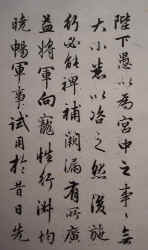 陛下愚以為宮中之事事無
大小悉以咨之然後施
行必能裨補闕漏有所廣
益將軍向寵性行淑均
曉暢軍事試用於昔日先